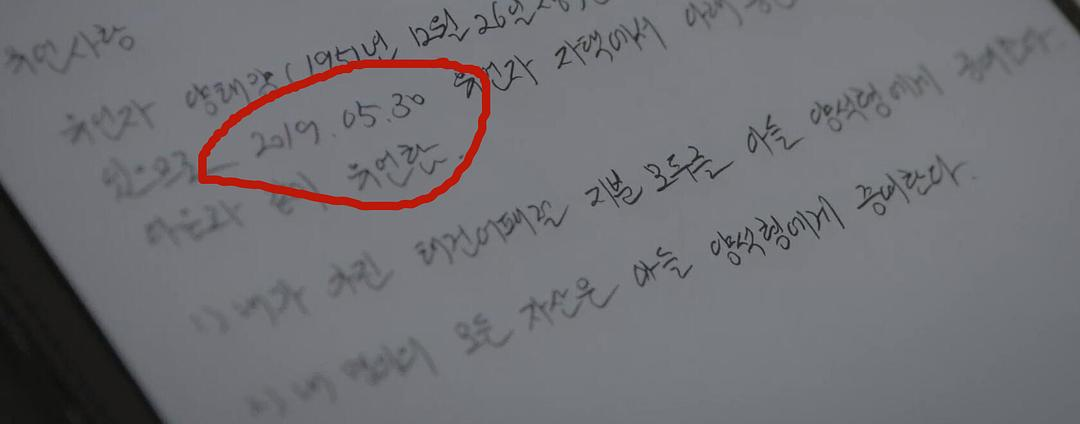 유언사항
유언자 양태양(1951년 12월 26일
있으므로 2019.05.30 유언자 자택에서 아래
다음과 같이 유언한다.
1) 내가 가진 태건어패럴 지분 모두를 아들 양석형에게 증여한다.
2) 내 명의의 모든 자산은 아들 양석형에게 증여한다.